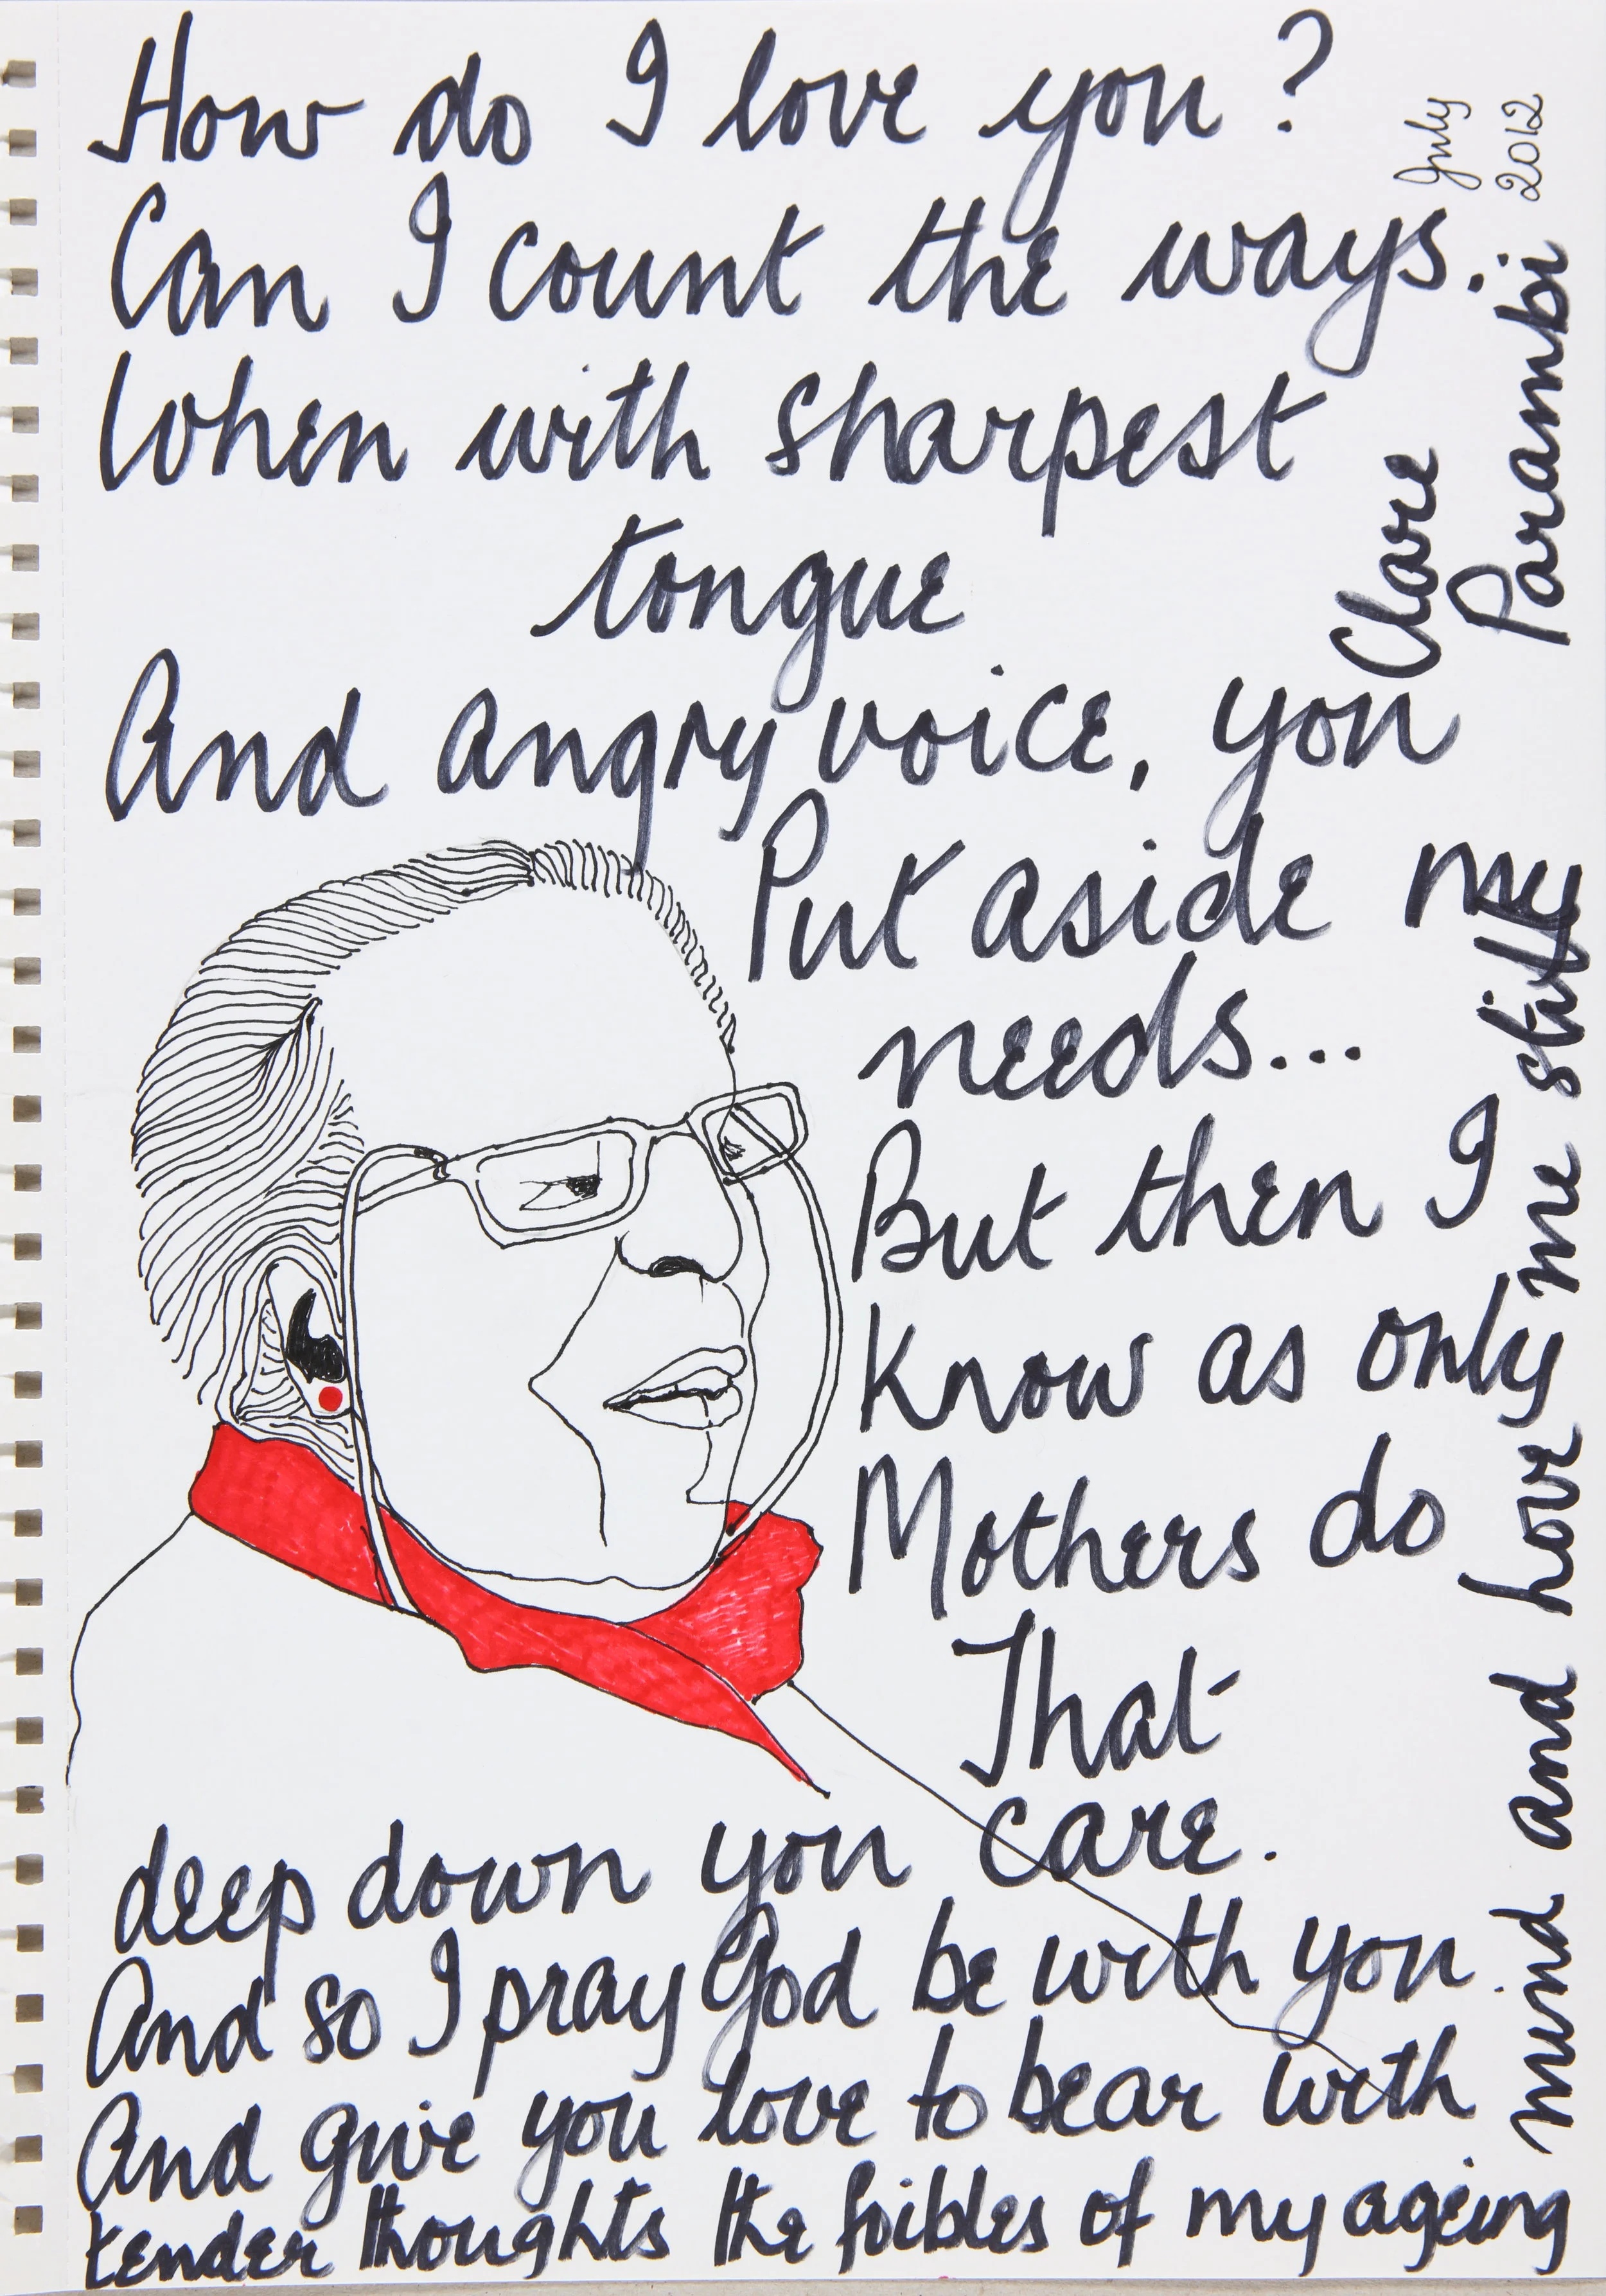 How do I love you?
Can I count the ways.
When with sharpest
tongue
And angry voice, you
Put aside my
needs...
But then I
know as only
Mothers do
That
deep down you care.
And so I pray God be with you.
And give you love to bear with
tender thoughts the foibles of my ageing
mind and love me still
Clare
Parambi
July
2012